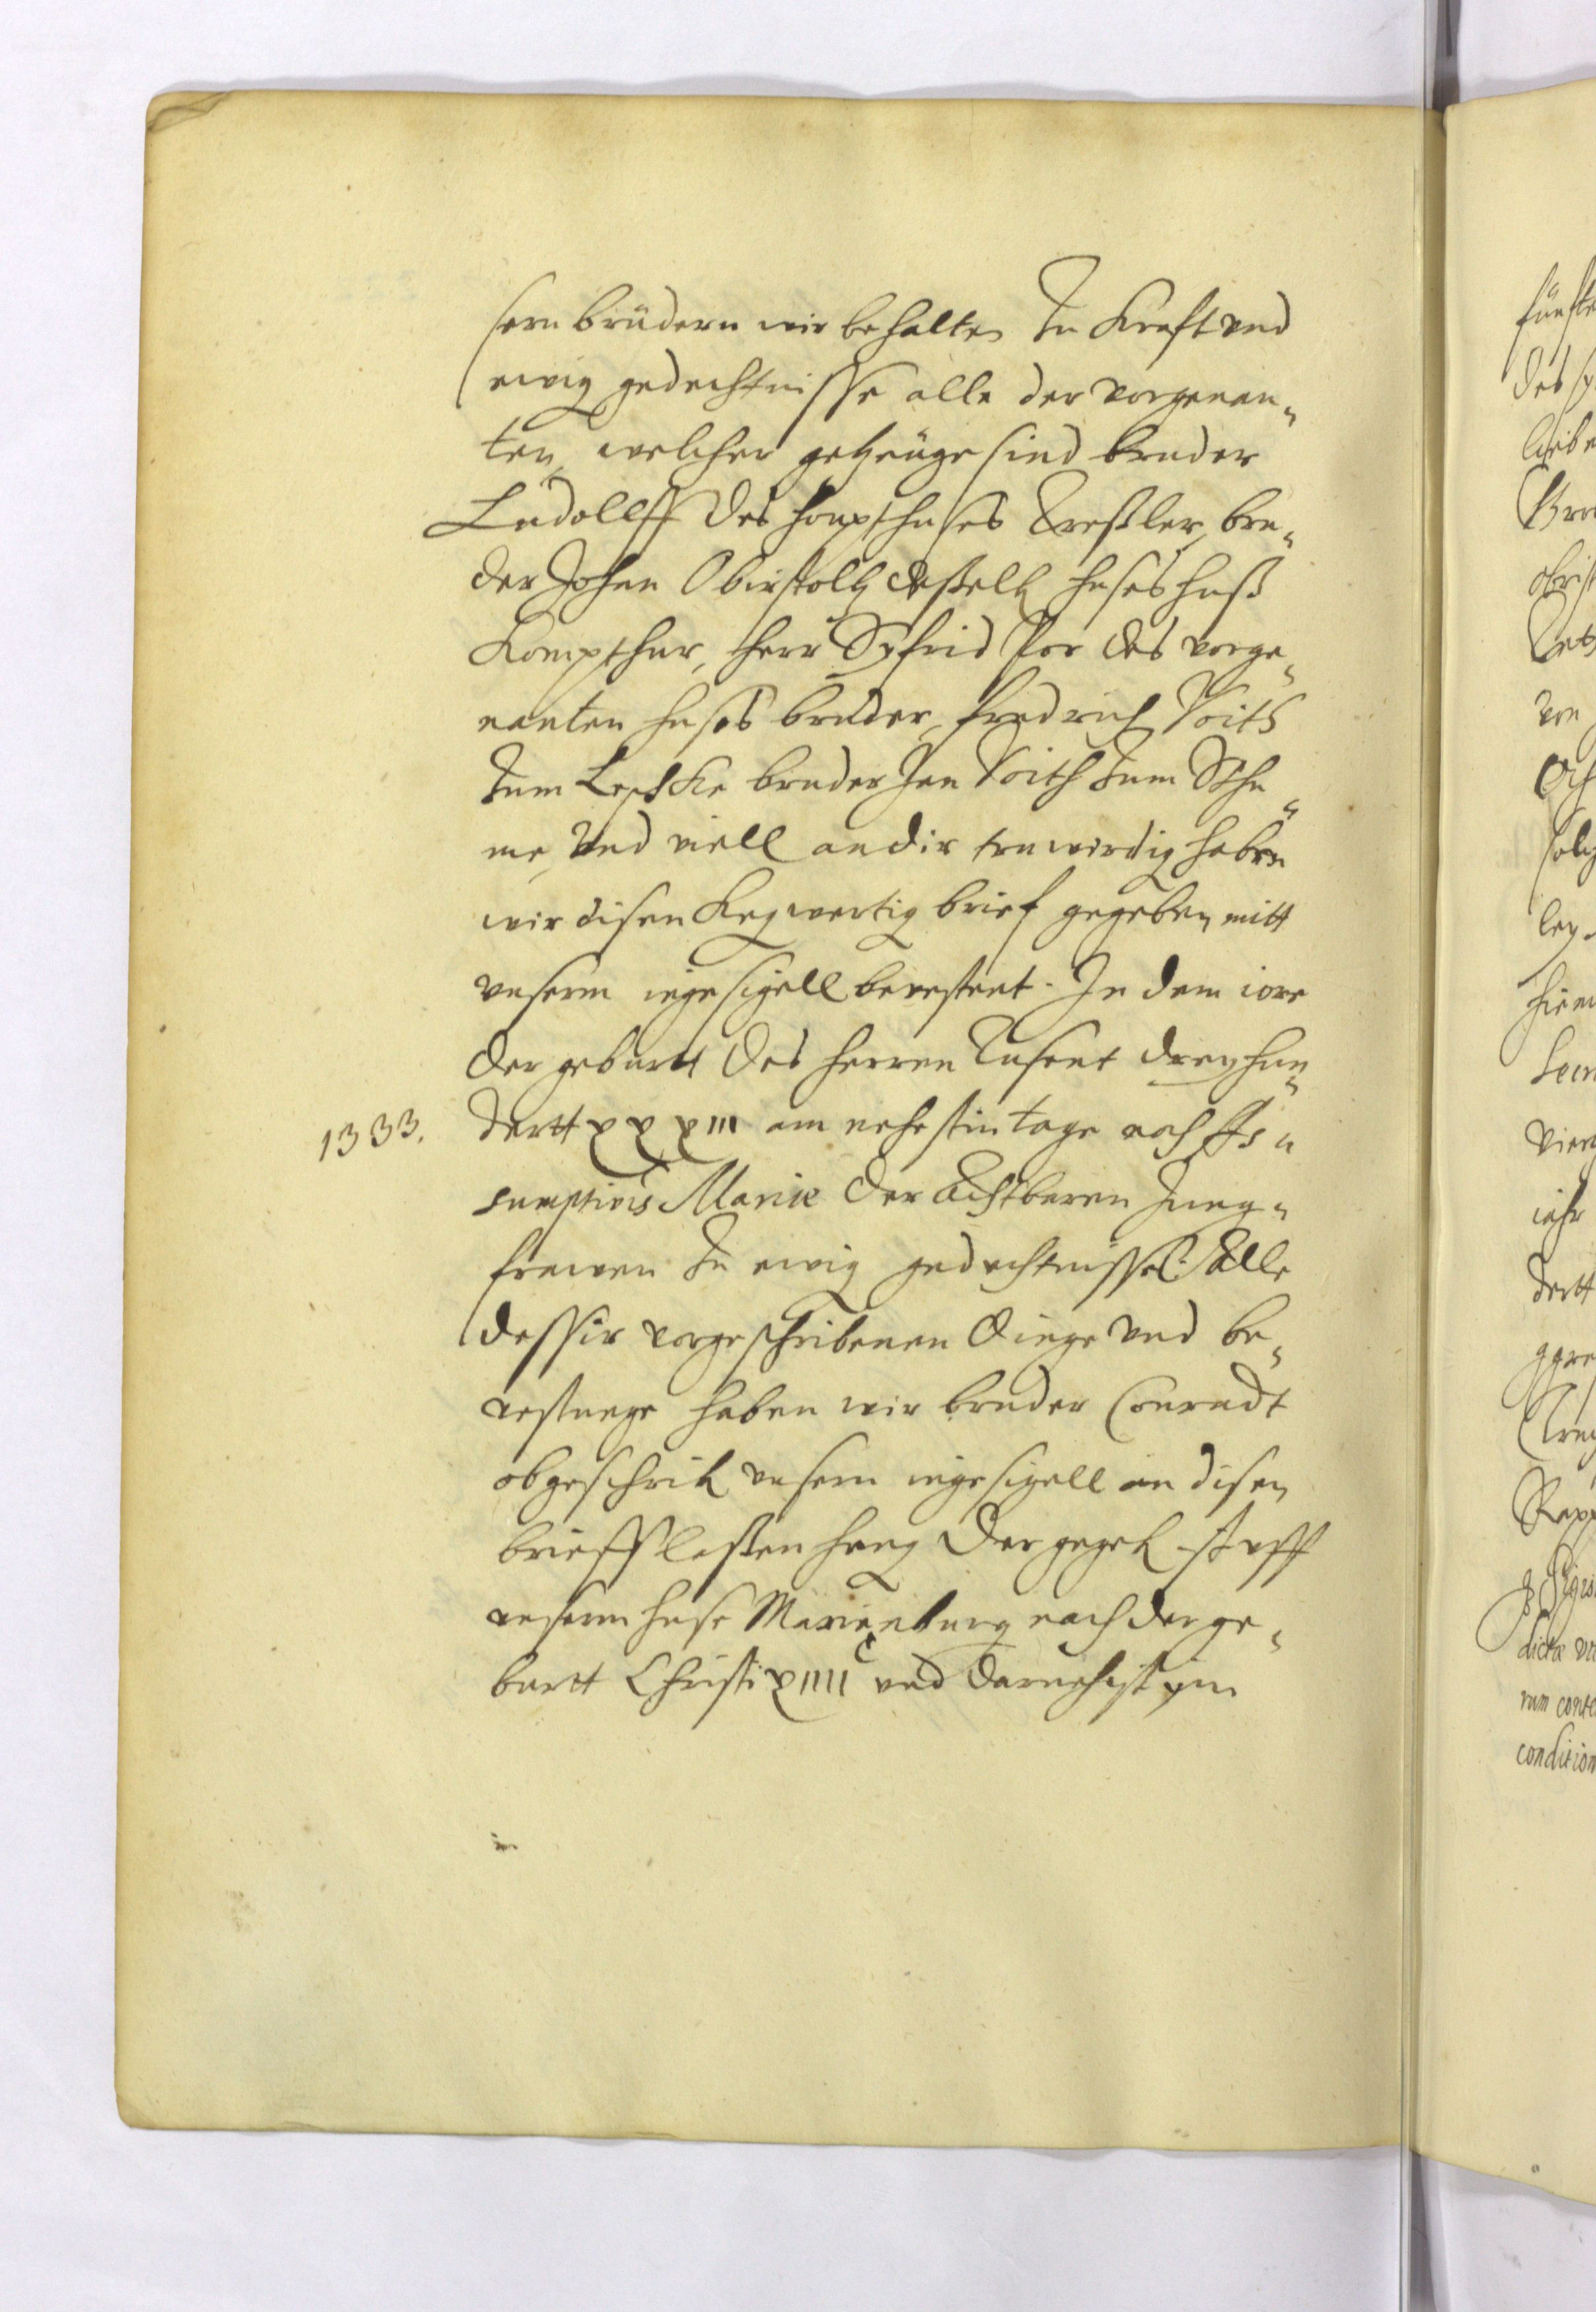 sern brüdern wir behalten Zu Kraft vnd
ewig gedechtnisse alle der vorgenan¬
ten, welcher gezeuge sind bruder
Ludolff des hompthuses Treßler, bru¬
der Johan Obirstoltz desselb huses huß
Kompthur, herr Syfrid Por des vorge¬
nanten huses bruder, fredrich Voith
Zum Lepske bruder Jan Voith Zum Sthu¬
me, Vnd viell andir truwirdig haben
wir disen kegwertig brief gegeben mitt
vnserm ingesigell bevestent. In dem iore
der geburtt des herren Tusent dreyhun¬
1333. dertt xxxiii am nehestin tage nach As¬
sumptiōis Mariæ der Achtbaren Jung¬
frawen Zu ewig gedechtnisse. Alle
dessir vorgeschribenen dinge vnd be¬
vestnege haben wir bruder Conradt
obgeschrib vnsern ingesigell an disen
brieff lassen heng der gegeb ist vff
vnserm huse Marienburg nach der ge¬
burtt Christi xiiiic vnd darnehist ym
in
fünfte
des
liebe
obrist
von
hiem
Secr
Vier
iahr
dertt
dictæ
rum conte
condition